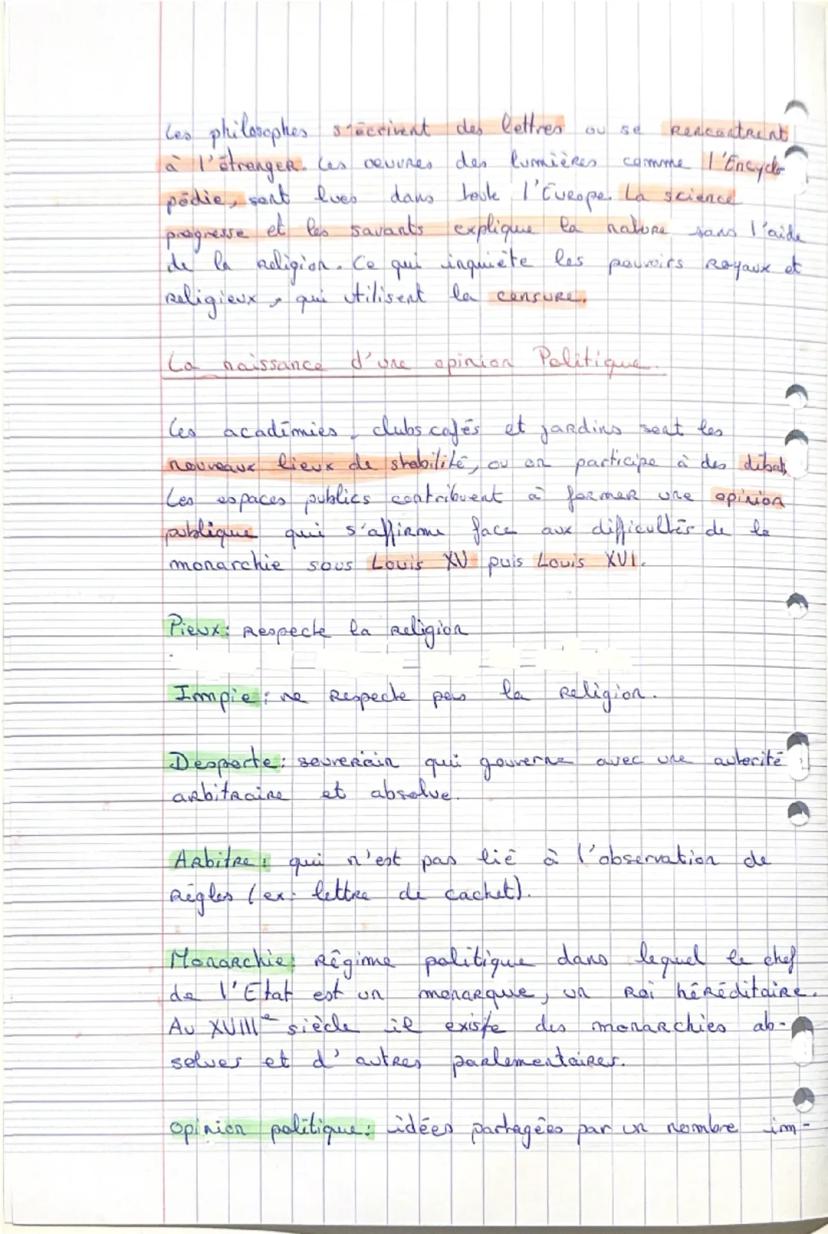 Les philosophes s'écrivent des lettres ou se rencontrent
à l'étranger. Les œuvres des lumières comme l'Encyclo
pédie, sont lues dans toute l'Europe. La science
progresse et les savants explique la nature sans l'aide
de la religion. Ce qui inquiète les pouvoirs royaux et
religieux, qui utilisent la censure.
La naissance d'une opinion Politique.
Les académies, clubs cafés et jardins sont les
nouveaux lieux de stabilité, ou on participe à des débat
Les espaces publics contribuent à former une opinion
publique qui s'affirme face aux difficultés de la
monarchie sous Louis XV puis Louis XVI.
Pieux: respecte la religion
Impie: ne respecte pas la religion.
Despote: souverain qui gouverne avec une autorité
arbitraire et absolue.
Arbitre: qui n'est pas lié à l'observation de
règles (ex: lettre de cachet).
Monarchie: régime politique dans lequel le chef
de l'Etat est un monarque, un roi héréditaire.
Au XVIIIe siècle il existe des monarchies ab-
solues et d'autres parlementaires.
opinion politique: idées partagées par un nombre im-